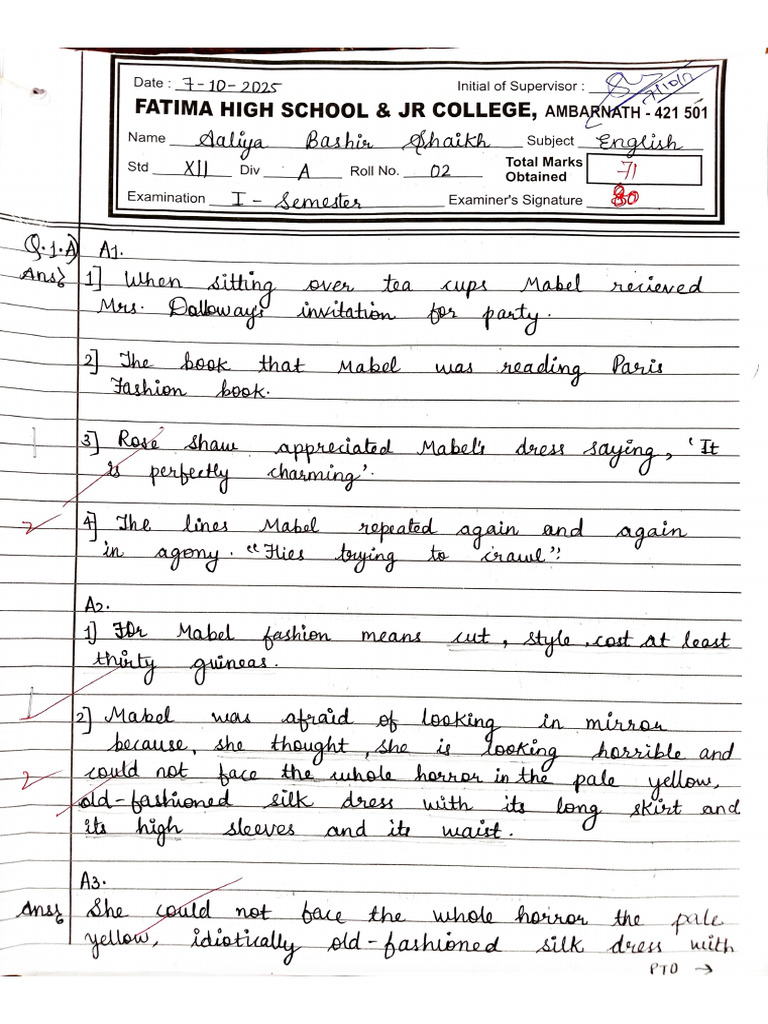 Date : 7-10-2025 Initial of Supervisor : 7/10/17
FATIMA HIGH SCHOOL & JR COLLEGE, AMBARNATH - 421 501
Name Aaliya Bashir Shaikh Subject English
Std XII Div A Roll No. 02 Total Marks Obtained 71
Examination I - Semester Examiner's Signature 80
Q.1.A) A1.
Ans} 1] When sitting over tea cups Mabel recieved
Mrs. Dalloway's invitation for party.
2] The book that Mabel was reading Paris
Fashion book.
3] Rose Shaw appreciated Mabel's dress saying, 'It
is perfectly charming'.
2 4] The lines Mabel repeated again and again
in agony. "Flies trying to crawl".
A2.
1) For Mabel fashion means cut, style, cost at least
thirty guineas.
2] Mabel was afraid of looking in mirror
because, she thought, she is looking horrible and
2 could not face the whole horror in the pale yellow,
old-fashioned silk dress with its long skirt and
its high sleeves and its waist.
A3.
Ans} She could not face the whole horror the pale
yellow, idiotically old-fashioned silk dress with
PTO →